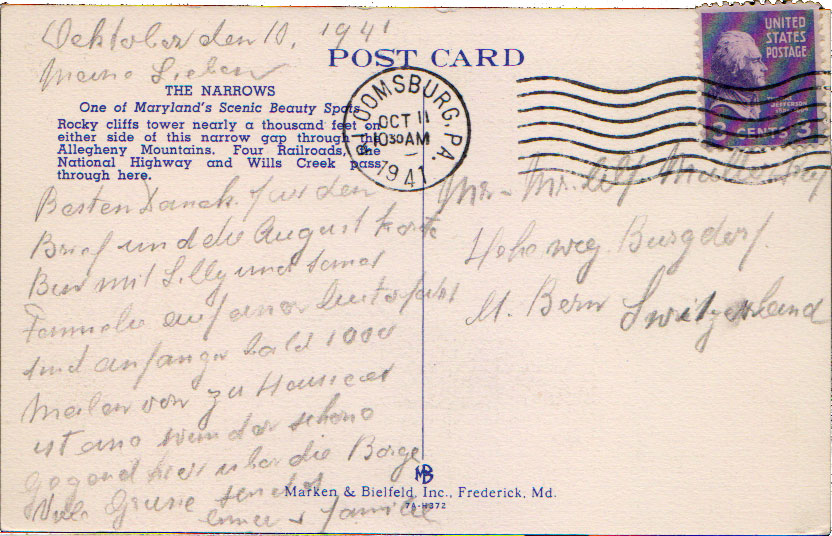 Oektober den 10, 1941
Meine Lieben
POST CARD
THE NARROWS
One of Maryland's Scenic Beauty Spots
Rocky cliffs tower nearly a thousand feet on
either side of this narrow gap through the
Allegheny Mountains. Four Railroads, the
National Highway and Wills Creek pass
through here.
BLOOMSBURG, PA.
OCT 11
10 30 AM
1941
UNITED
STATES
POSTAGE
JEFFERSON
3 CENTS 3
Besten Danck fur den
Brief und die August Karte
Bin mit Lilly und
Familie auf einer
und anfangs bald 1000
Meilen von zu Hause es
ist eine wunder schone
Gegend hier uber die Berge
Viele Grusse sendet
Familie
Mr - Mr. Müller
Hohe weg. Burgdorf.
Kt. Bern Switzerland
MB
Marken & Bielfeld, Inc., Frederick, Md.
7A-H372